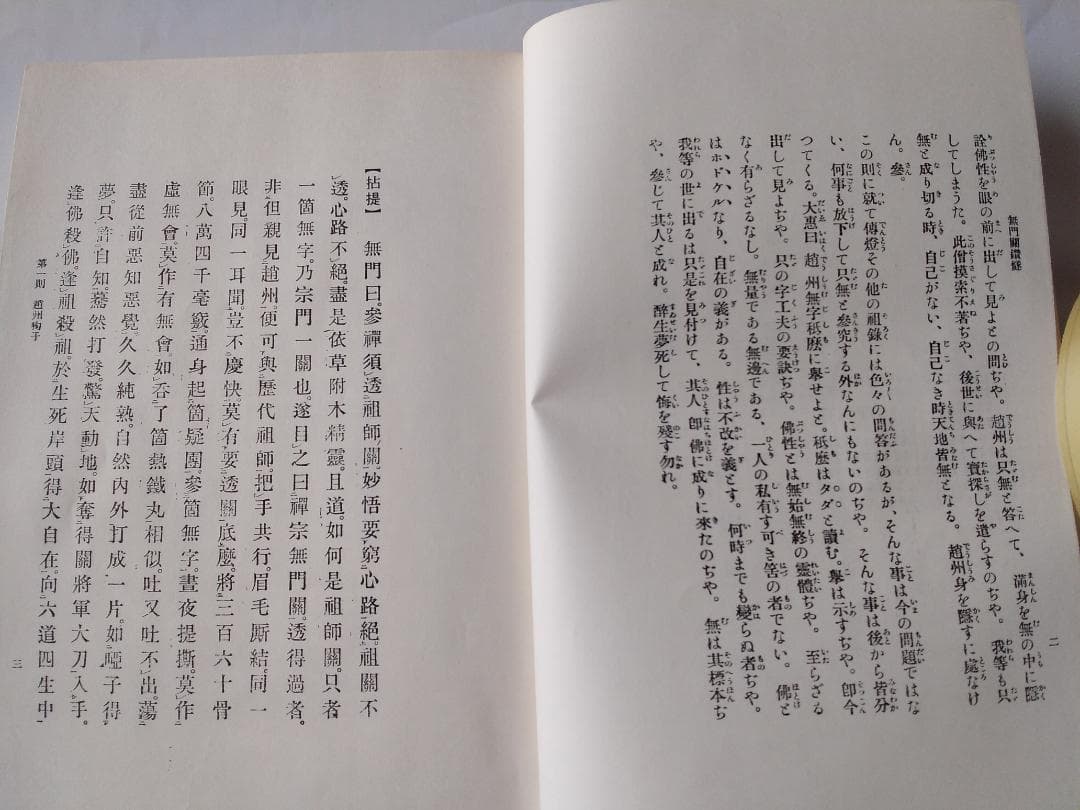 無門關鑽燧
二
詮佛性を眼の前に出して見よとの問ぢや。趙州は只無と答へて、滿身を無の中に隱
してしまうた。此僧摸索不著ぢや、後世に與へて寶探しを遣らすのぢや。我等も只
無と成り切る時、自己がない、自己なき時天地皆無となる。趙州身を隱すに處なけ
ん。參。
この則に就て傳燈その他の祖錄には色々の問答があるが、そんな事は今の問題ではな
い、何事も放下して只無と參究する外なんにもないのぢや。そんな事は後から皆分
つてくる。大惠曰、趙州無字秖麽に擧せよと。秖麽はタダと讀む。擧は示すぢや。卽今
出して見よぢや。只の字工夫の要訣ぢや。佛性とは無始無終の靈體ぢや。至らざる
なく有らざるなし。無量である無邊である、一人の私有す可き筈の者でない。佛と
はホドケルなり、自在の義がある。性は不改を義とす。何時までも變らぬ者ぢや。
我等の世に出るは只是を見付けて、其人卽佛に成りに來たのぢや。無は其標本ぢ
や、參じて其人と成れ。醉生夢死して悔を殘す勿れ。
【拈提】 無門曰。參禪須透祖師關。妙悟要窮心路絕。祖關不
透。心路不絕。盡是依草附木精靈。且道。如何是祖師關。只者
一箇無字。乃宗門一關也。遂目之曰禪宗無門關。透得過者。
非但親見趙州。便可與歷代祖師。把手共行。眉毛厮結同一
眼見。同一耳聞。豈不慶快。莫有要透關底麽。將三百六十骨
節。八萬四千毫竅。通身起箇疑團。參箇無字。晝夜提撕。莫作
虛無會。莫作有無會。如吞了箇熱鐵丸相似。吐又吐不出。蕩
盡從前惡知惡覺。久久純熟。自然內外打成一片。如啞子得
夢。只許自知。驀然打發。驚天動地。如奪得關將軍大刀入手。
逢佛殺佛。逢祖殺祖。於生死岸頭得大自在。向六道四生中
第一則 趙州狗子
三